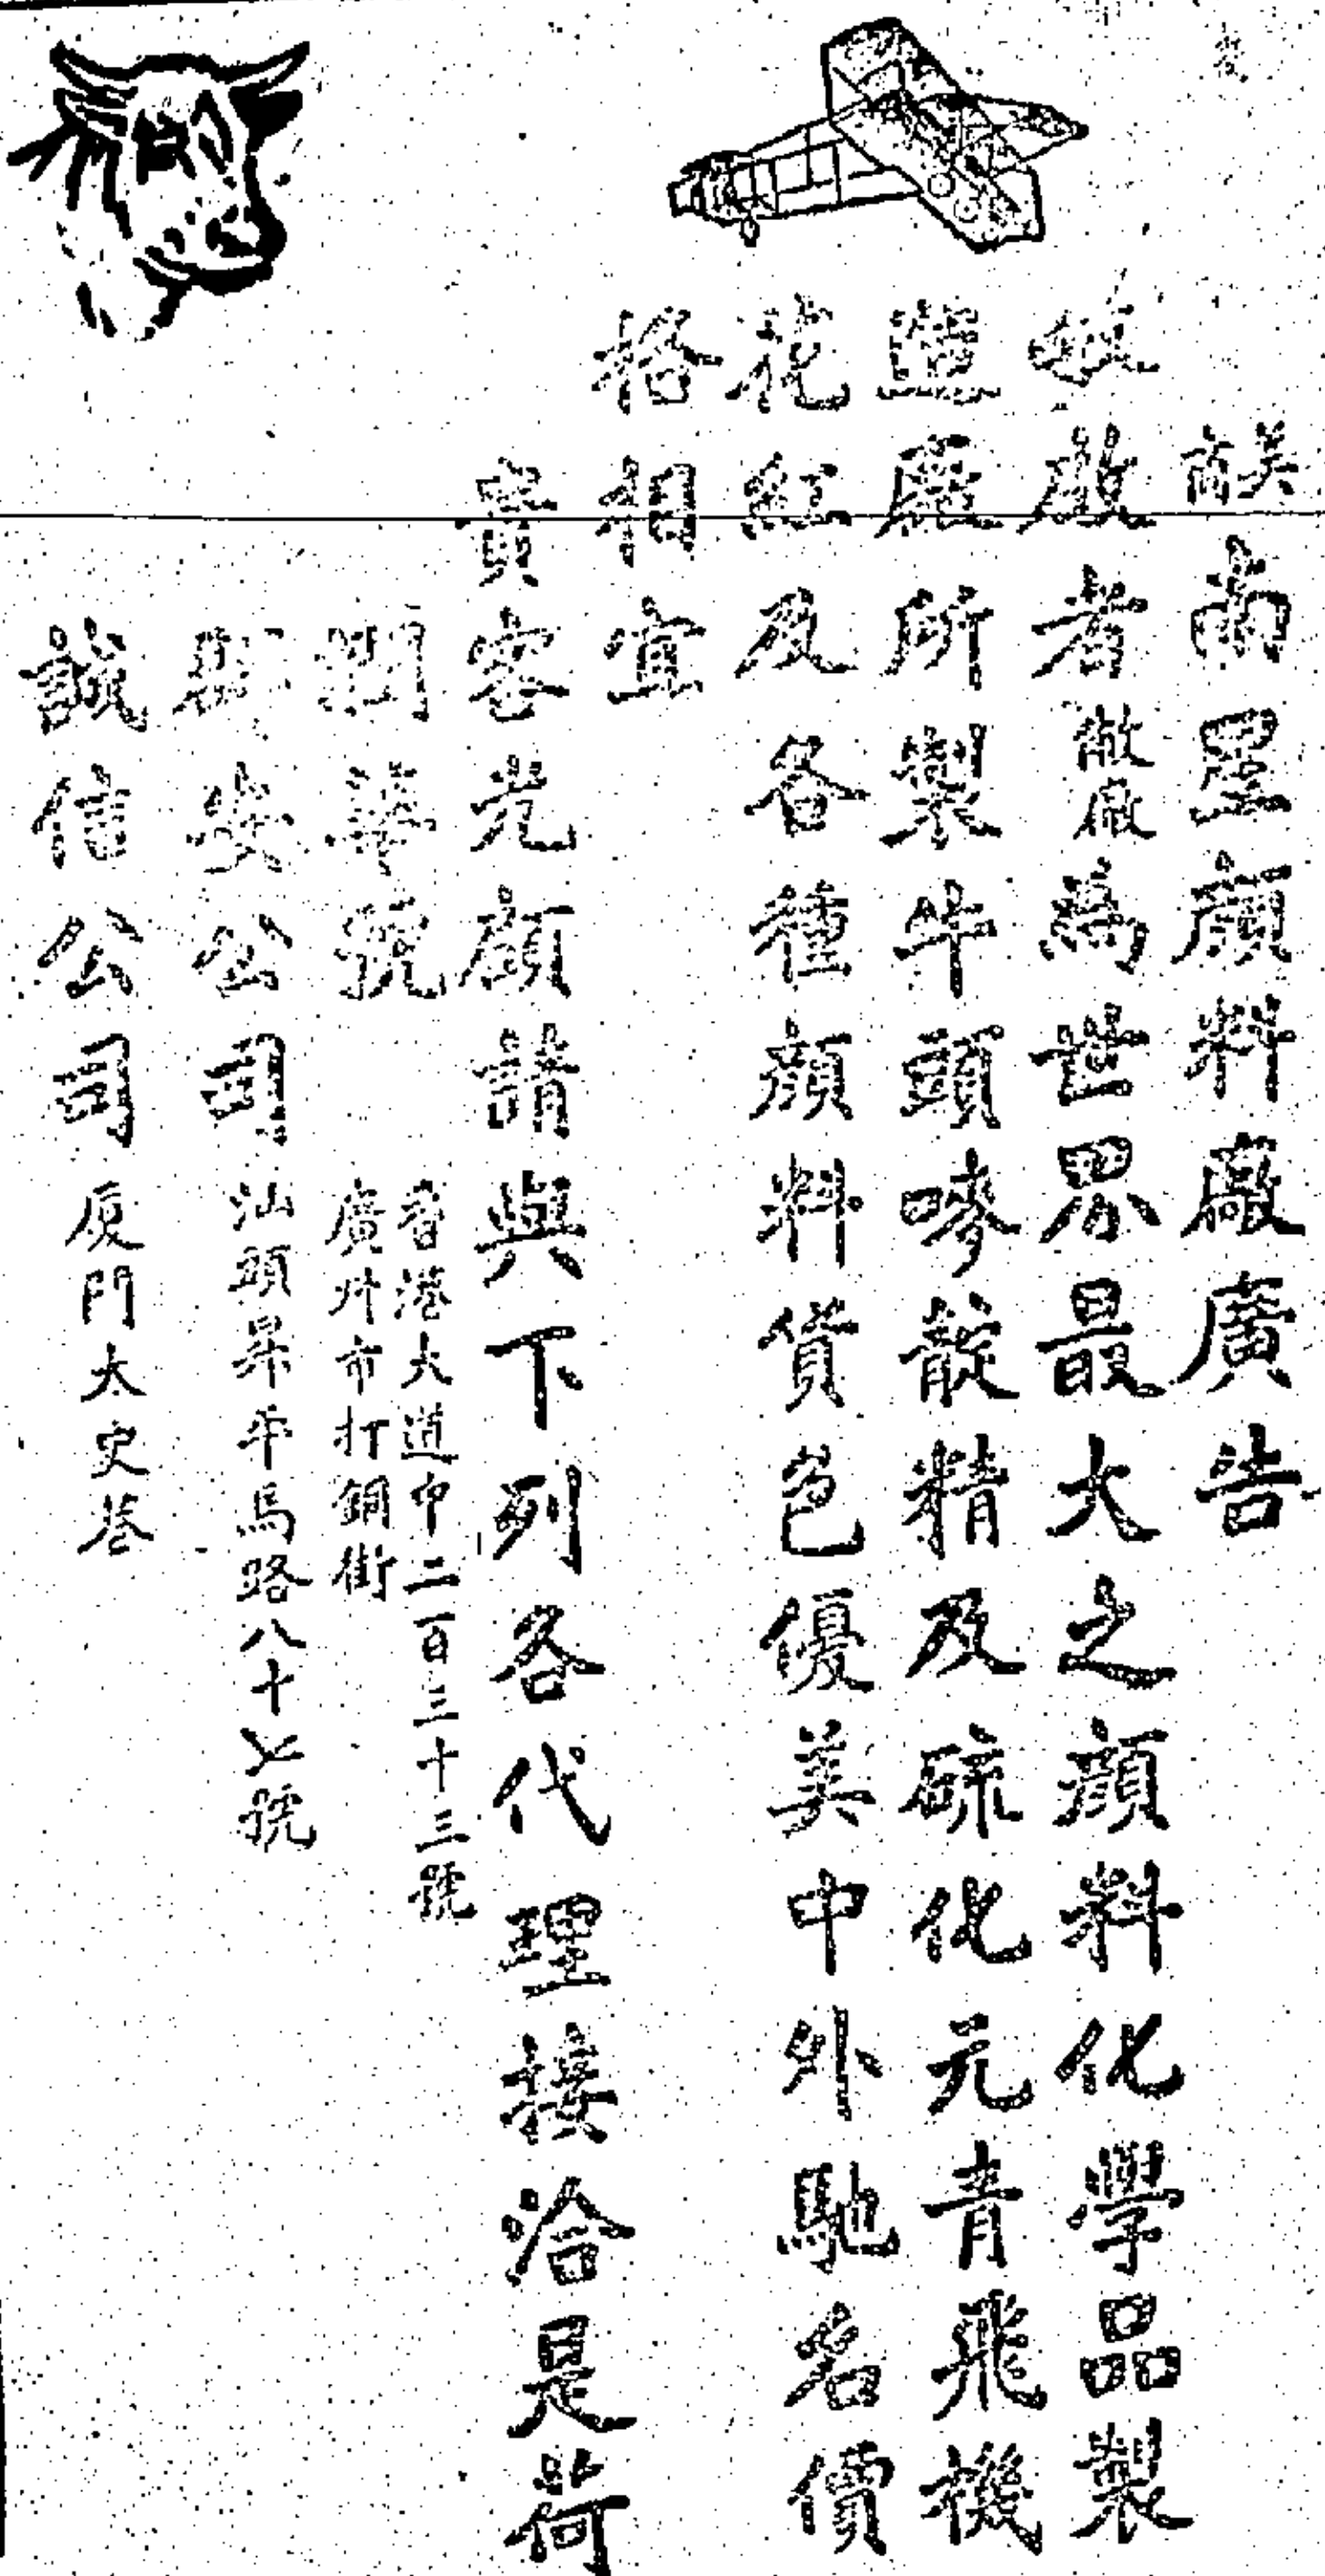 美商南星顏料廠廣告
敬啟者敝廠為世界最大之顏料化學品製
造廠所製牛頭嘜靛精及硫化元青飛機
花紅及各種顏料貨色優美中外馳名價
格相宜
寶客光顧請與下列各代理接洽是荷
華號
香港大道中二百三十三號
廣州市打銅街
安公司 汕頭昇平馬路八十七號
誠信公司 厦門太史巷